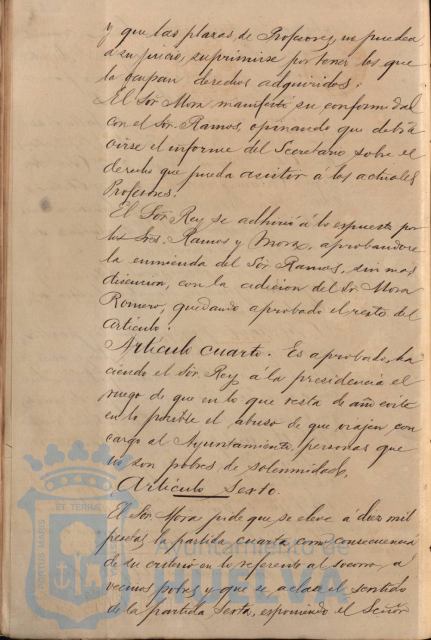 y que las plazas de Profesores, no pueden
á su juicio, suprimirse por tener los que
la ocupan derechos adquiridos.
El Sor. Mora manifestó su conformidad
con el Sor. Ramos, opinando que debía
oirse el informe del Secretario sobre el
derecho que pueda asistir á los actuales
Profesores.
El Sor. Rey se adhirió á lo expuesto por
los Sres. Ramos y Mora, aprobandose
la enmienda del Sor. Ramos, sin mas
discusion, con la adicion del Sr. Mora
Romero, quedando aprobado el resto del
artículo.
Artículo cuarto. Es aprobado, ha
ciendo el Sor. Rey á la presidencia el
ruego de que en lo que resta de año evite
en lo posible el abuso de que viajen con
cargo al Ayuntamiento, personas que
no son pobres de solemnidad.
Artículo Sexto.
El Sor. Mora pide que se eleve á diez mil
pesetas la partida cuarta como consecuencia
de su criterio en lo referente al socorro, a
vecinos pobres y que se aclare el sentido
de la partida Sexta, exponiendo el Señor
Ayuntamiento de
HUELVA
PORTUS MARIS ET TERRAE